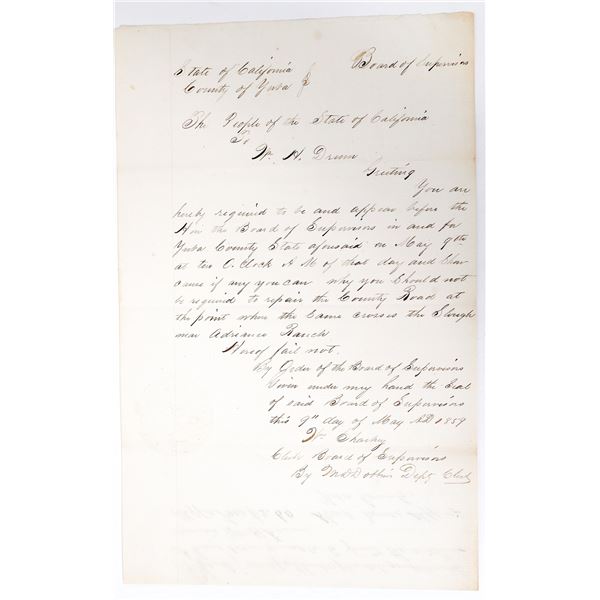 State of California } Board of Supervisors
County of Yuba
The People of the State of California
To
Wm. H. Drum
Greeting
You are
hereby required to be and appear before the
Hon the Board of Supervisors in and for
Yuba County State aforesaid on May 9th
at ten O.Clock A M of that day and Show
cause if any you can why you Should not
be required to repair the County Road at
the point where the Same crosses the Slough
near Adriance Ranch
Hereof fail not.
By Order of the Board of Supervisors
Given under my hand the Seal
of said Board of Supervisors
this 9" day of May AD 1859
Wm Sharkey
Clerk Board of Supervisors
By Dobbins Depty Clerk